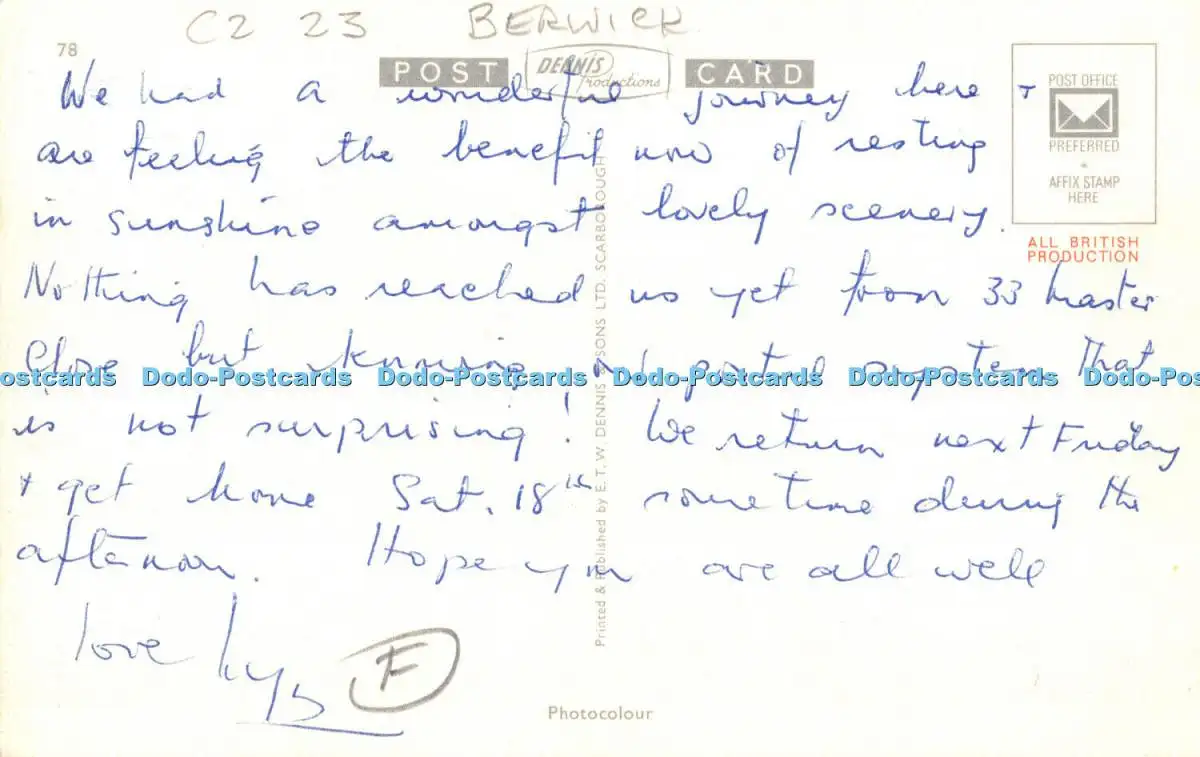 C2 23 BERWICK
78
POST CARD
DENNIS
Productions
We had a wonderful journey here +
are feeling the benefit now of resting
in sunshine amongst lovely scenery.
Nothing has reached us yet from 33
Close but knowing postal system that
is not surprising! We return next Friday
+ get home Sat. 18th sometime during the
afternoon. Hope you are all well
love
F
POST OFFICE
PREFERRED
AFFIX STAMP
HERE
ALL BRITISH
PRODUCTION
Printed & Published by E. T. W. DENNIS & SONS LTD. SCARBOROUGH
Photocolour
Dodo-Postcards Dodo-Postcards Dodo-Postcards Dodo-Postcards